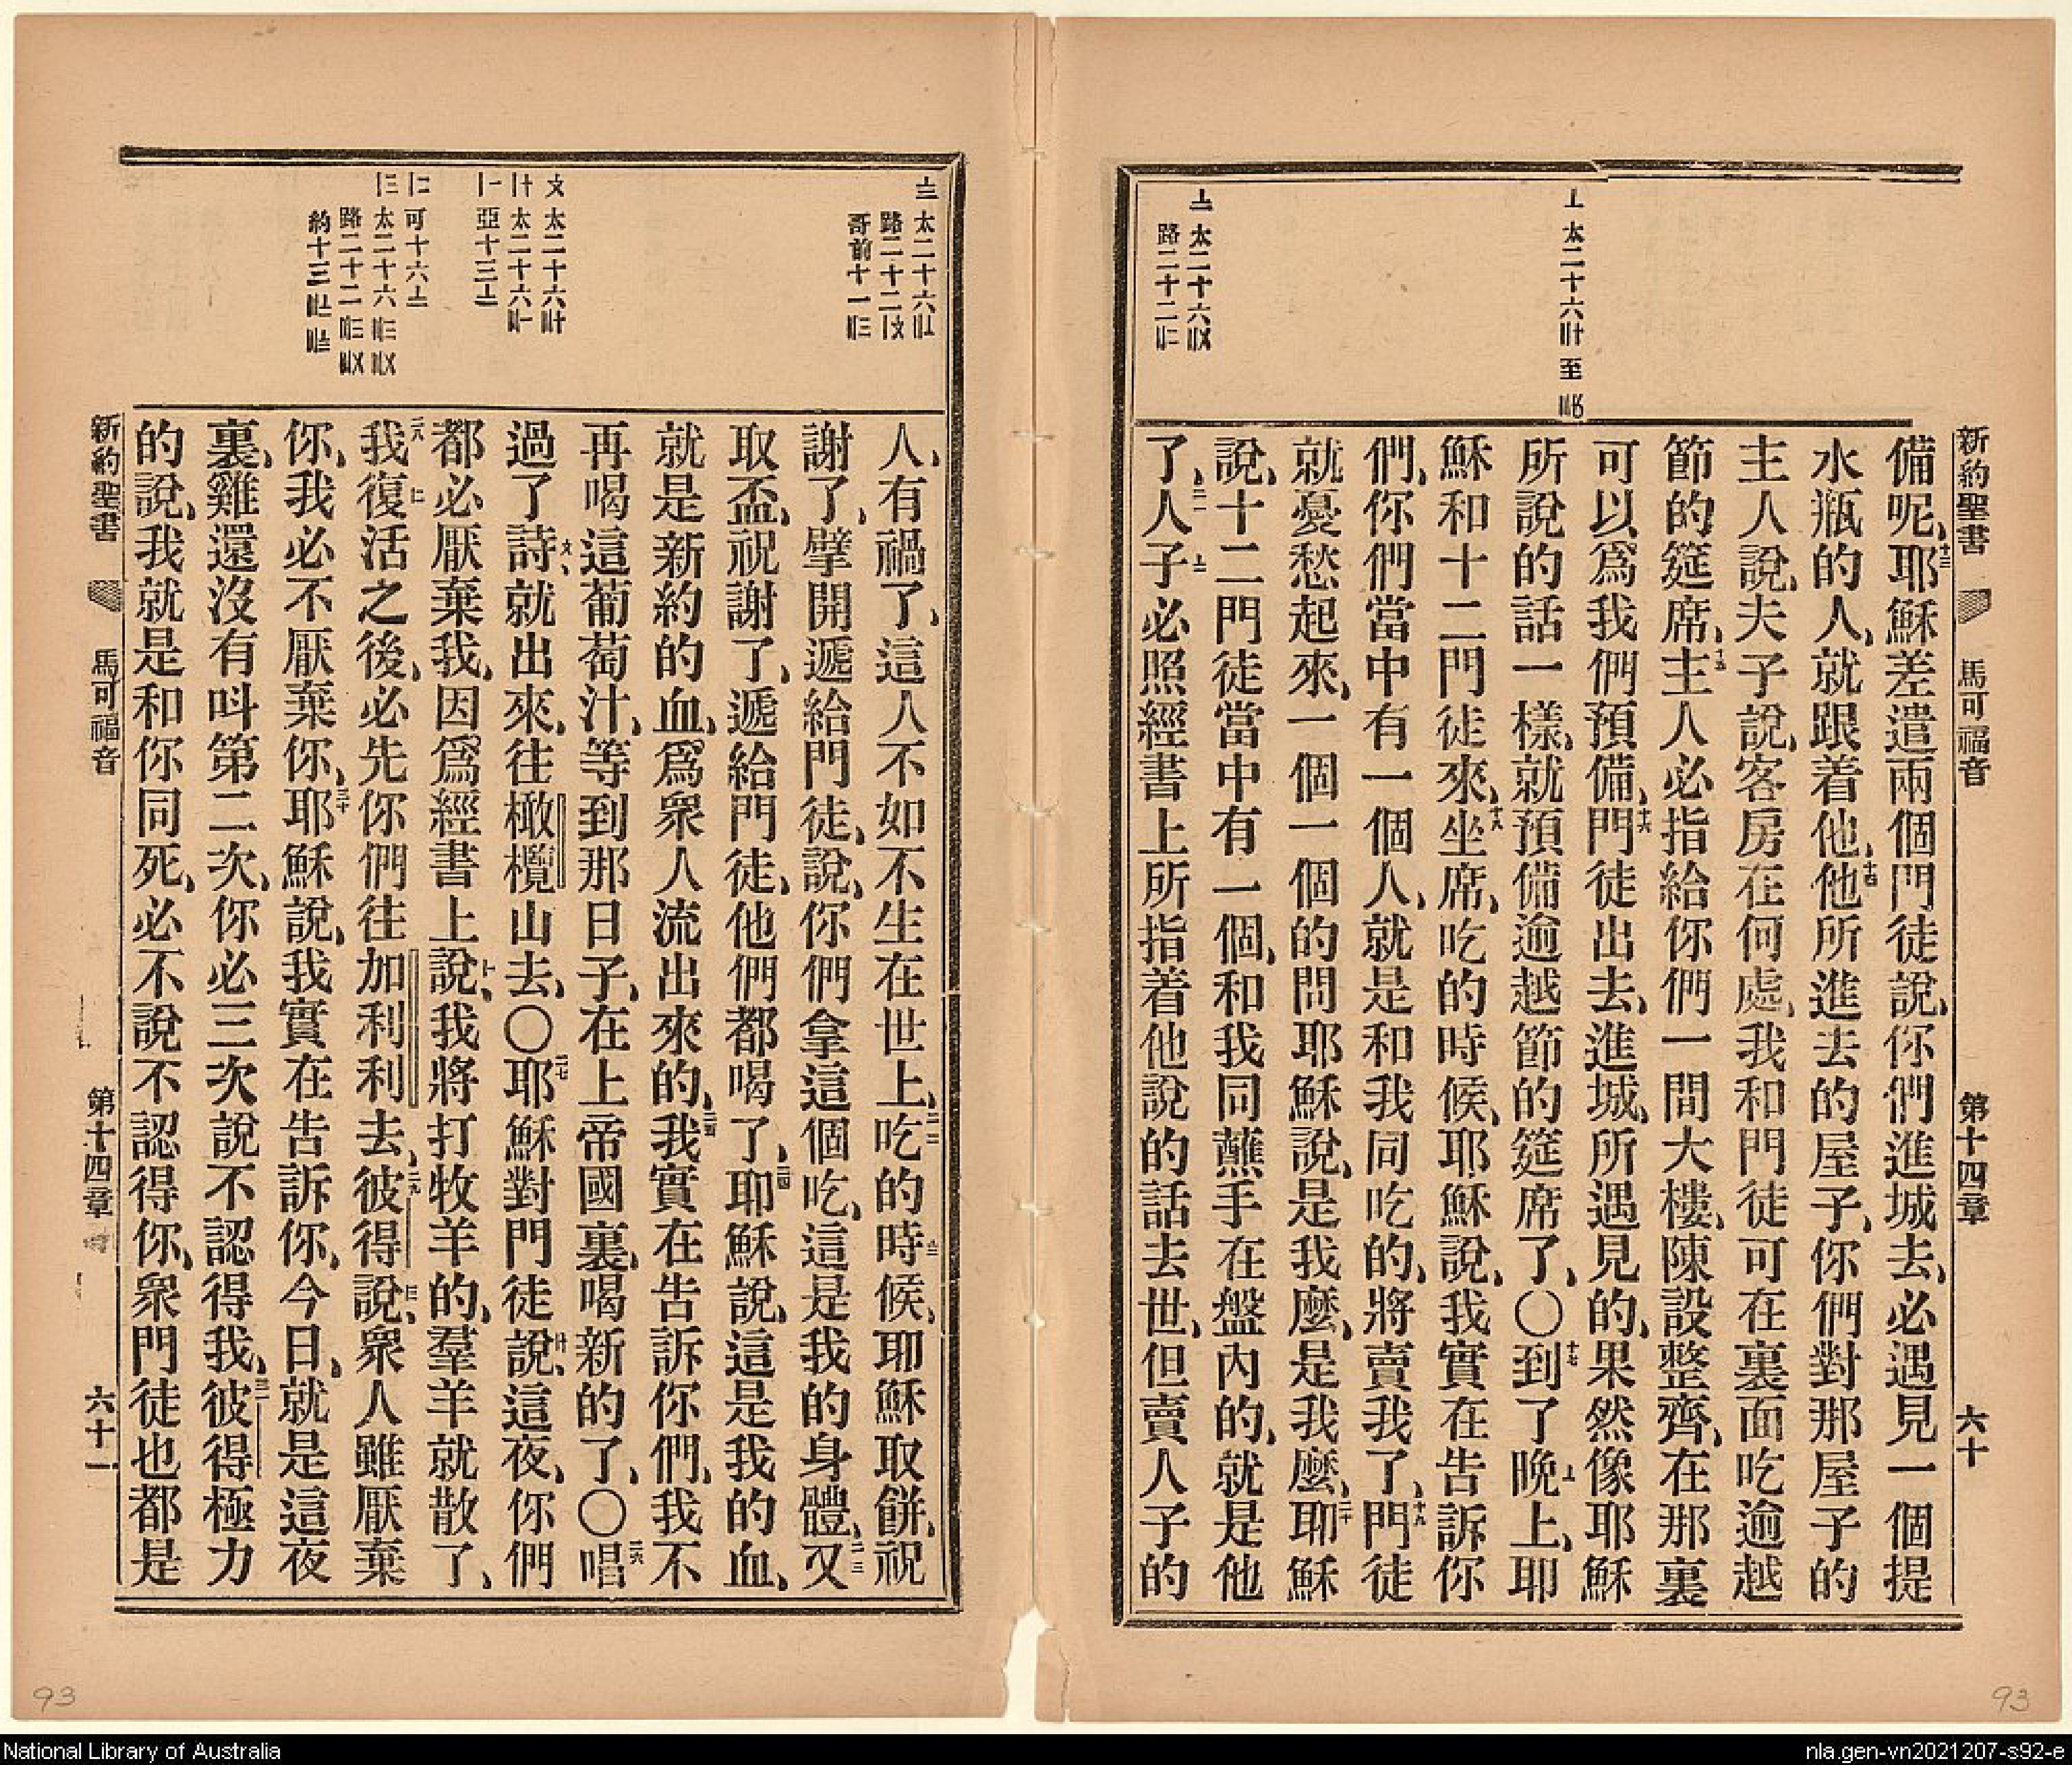 新約聖書 馬可福音 第十四章 六十
太二十六
至
太二十六
路二十二
備呢、十三耶穌差遣兩個門徒說、你們進城去、必遇見一個提
水瓶的人、就跟着他、十四他所進去的屋子、你們對那屋子的
主人說、夫子說、客房在何處、我和門徒可在裏面吃逾越
節的筵席、十五主人必指給你們一間大樓、陳設整齊、在那裏
可以爲我們預備、十六門徒出去、進城、所遇見的、果然像耶穌
所說的話一樣、就預備逾越節的筵席了、〇十七到了晚上、耶
穌和十二門徒來、十八坐席、吃的時候、耶穌說、我實在告訴你
們、你們當中有一個人、就是和我同吃的、將賣我了、十九門徒
就憂愁起來、一個一個的問耶穌說、是我麼、是我麼、二十耶穌
說、十二門徒當中有一個、和我同蘸手在盤內的、就是他
了、二一人子必照經書上所指着他說的話去世、但賣人子的
太二十六
路二十二
哥前十一
太二十六
太二十六
亞十三
可十六
太二十六
路二十二
約十三
人、有禍了、這人不如不生在世上、二二吃的時候、耶穌取餅、祝
謝了、擘開遞給門徒、說、你們拿這個吃、這是我的身體、二三又
取盃、祝謝了、遞給門徒、他們都喝了、二四耶穌說、這是我的血、
就是新約的血、爲衆人流出來的、我實在告訴你們、我不
再喝這葡萄汁、等到那日子、在上帝國裏、喝新的了、〇二六唱
過了詩、就出來、往橄欖山去、〇二七耶穌對門徒說、這夜、你們
都必厭棄我、因爲經書上說、我將打牧羊的、羣羊就散了、
二八我復活之後、必先你們往加利利去、二九彼得說、衆人雖厭棄
你、我必不厭棄你、三十耶穌說、我實在告訴你、今日、就是這夜
裏、雞還沒有呌第二次、你必三次說不認得我、三一彼得極力
的說、我就是和你同死、必不說不認得你、衆門徒也都是
新約聖書 馬可福音 第十四章 六十一
93
93
National Library of Australia
nla.gen-vn2021207-s92-e